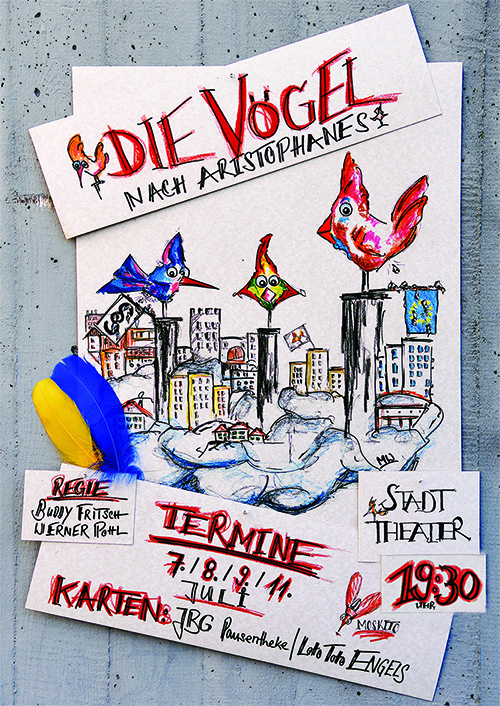 DIE VÖGEL
NACH ARISTOPHANES
REGIE
BUDDY FRITSCH
WERNER POHL
STADT
THEATER
19:30
UHR
TERMINE
7./8./9./11.
JULI
KARTEN: JBG Pausentheke/Lotto Toto ENGELS
MOSKITO